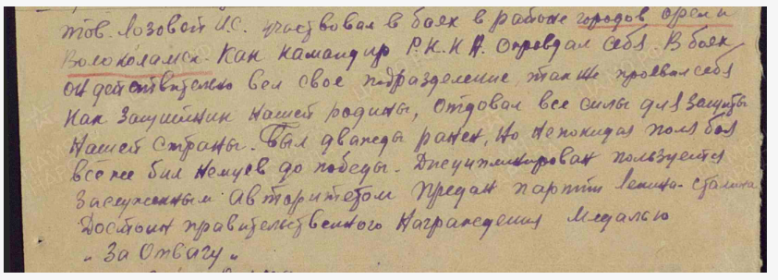 тов. Лозовой И.С. участвовал в боях в районе городов Орел и
Волоколамск. Как командир Р.К.К.А. оправдал себя. В боях
он действительно вел свое подразделение, также проявил себя
как защитник нашей родины, отдавал все силы для защиты
нашей страны. Был дважды ранен, но не покидая поля боя
все же бил немцев до победы. Дисциплинирован пользуется
заслуженным авторитетом предан партии Ленина-Сталина
Достоин правительственного награждения медалью
"За Отвагу"